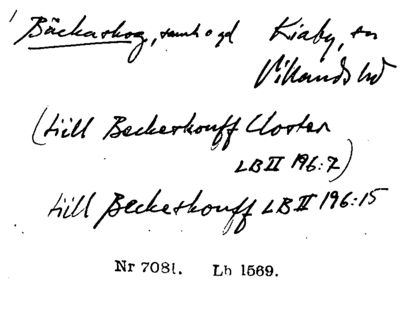 Bäckaskog, samh o gd Kiaby, sn
Villands hd
(till Beckeskouff Closter
LB II 196:7)
till Beckeskouff LB II 196:15
Nr 7081. Lb 1569.